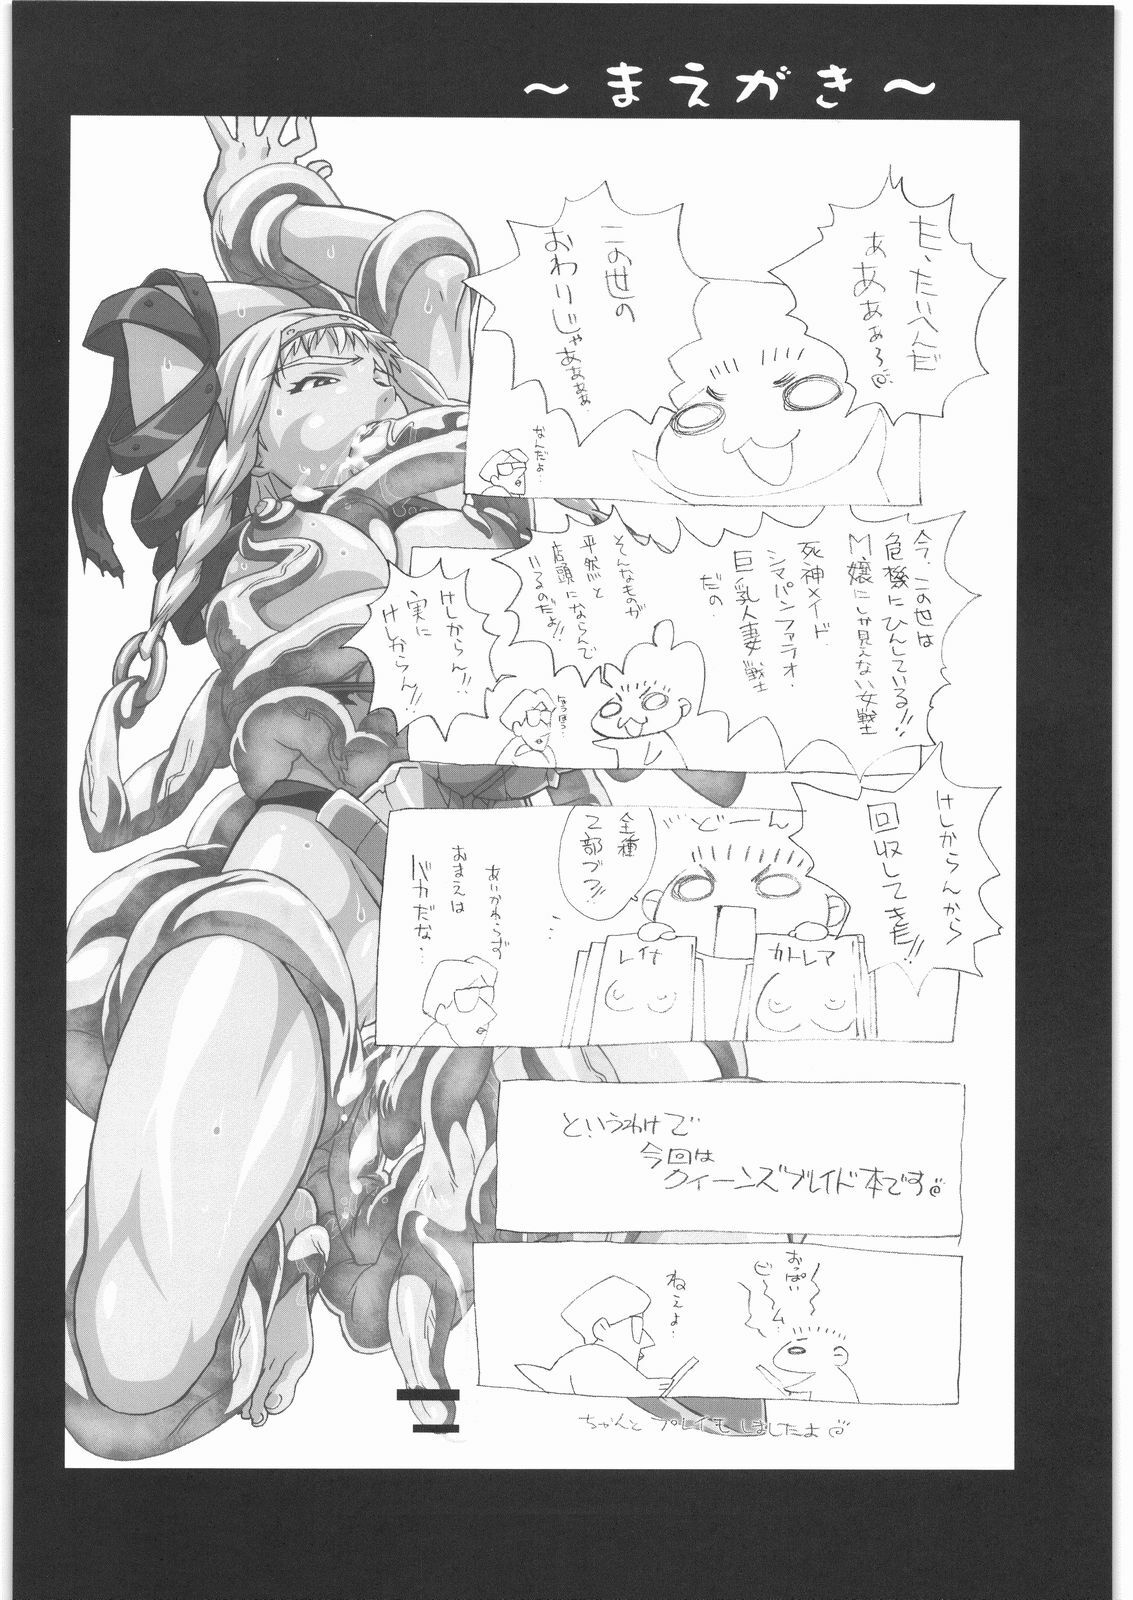 ～まえがき～
た、たいへんだ
ぁあぁぁ～
この世の
おわりじゃあぁぁぁぁ
なんだよ…
今、この世は
危機にひんしている!!
M嬢にしか見えない女戦士
死神メイド
シマパンファラオ・
巨乳人妻戦士
だの
そんなものが
平然と
店頭にならんで
いるのだよ!!
けしからん!!
実に
けしからん!!
なるほど…
けしからんから
回収してきた!!
どーん
全種
2部づつ!!
レイナ
カトレア
あいかわらず
おまえは
バカだな…
というわけで
今回は
クイーンズブレイド本です
おっぱい
ビーム
ねぇよ…
ちゃんとプレイもしましたよ